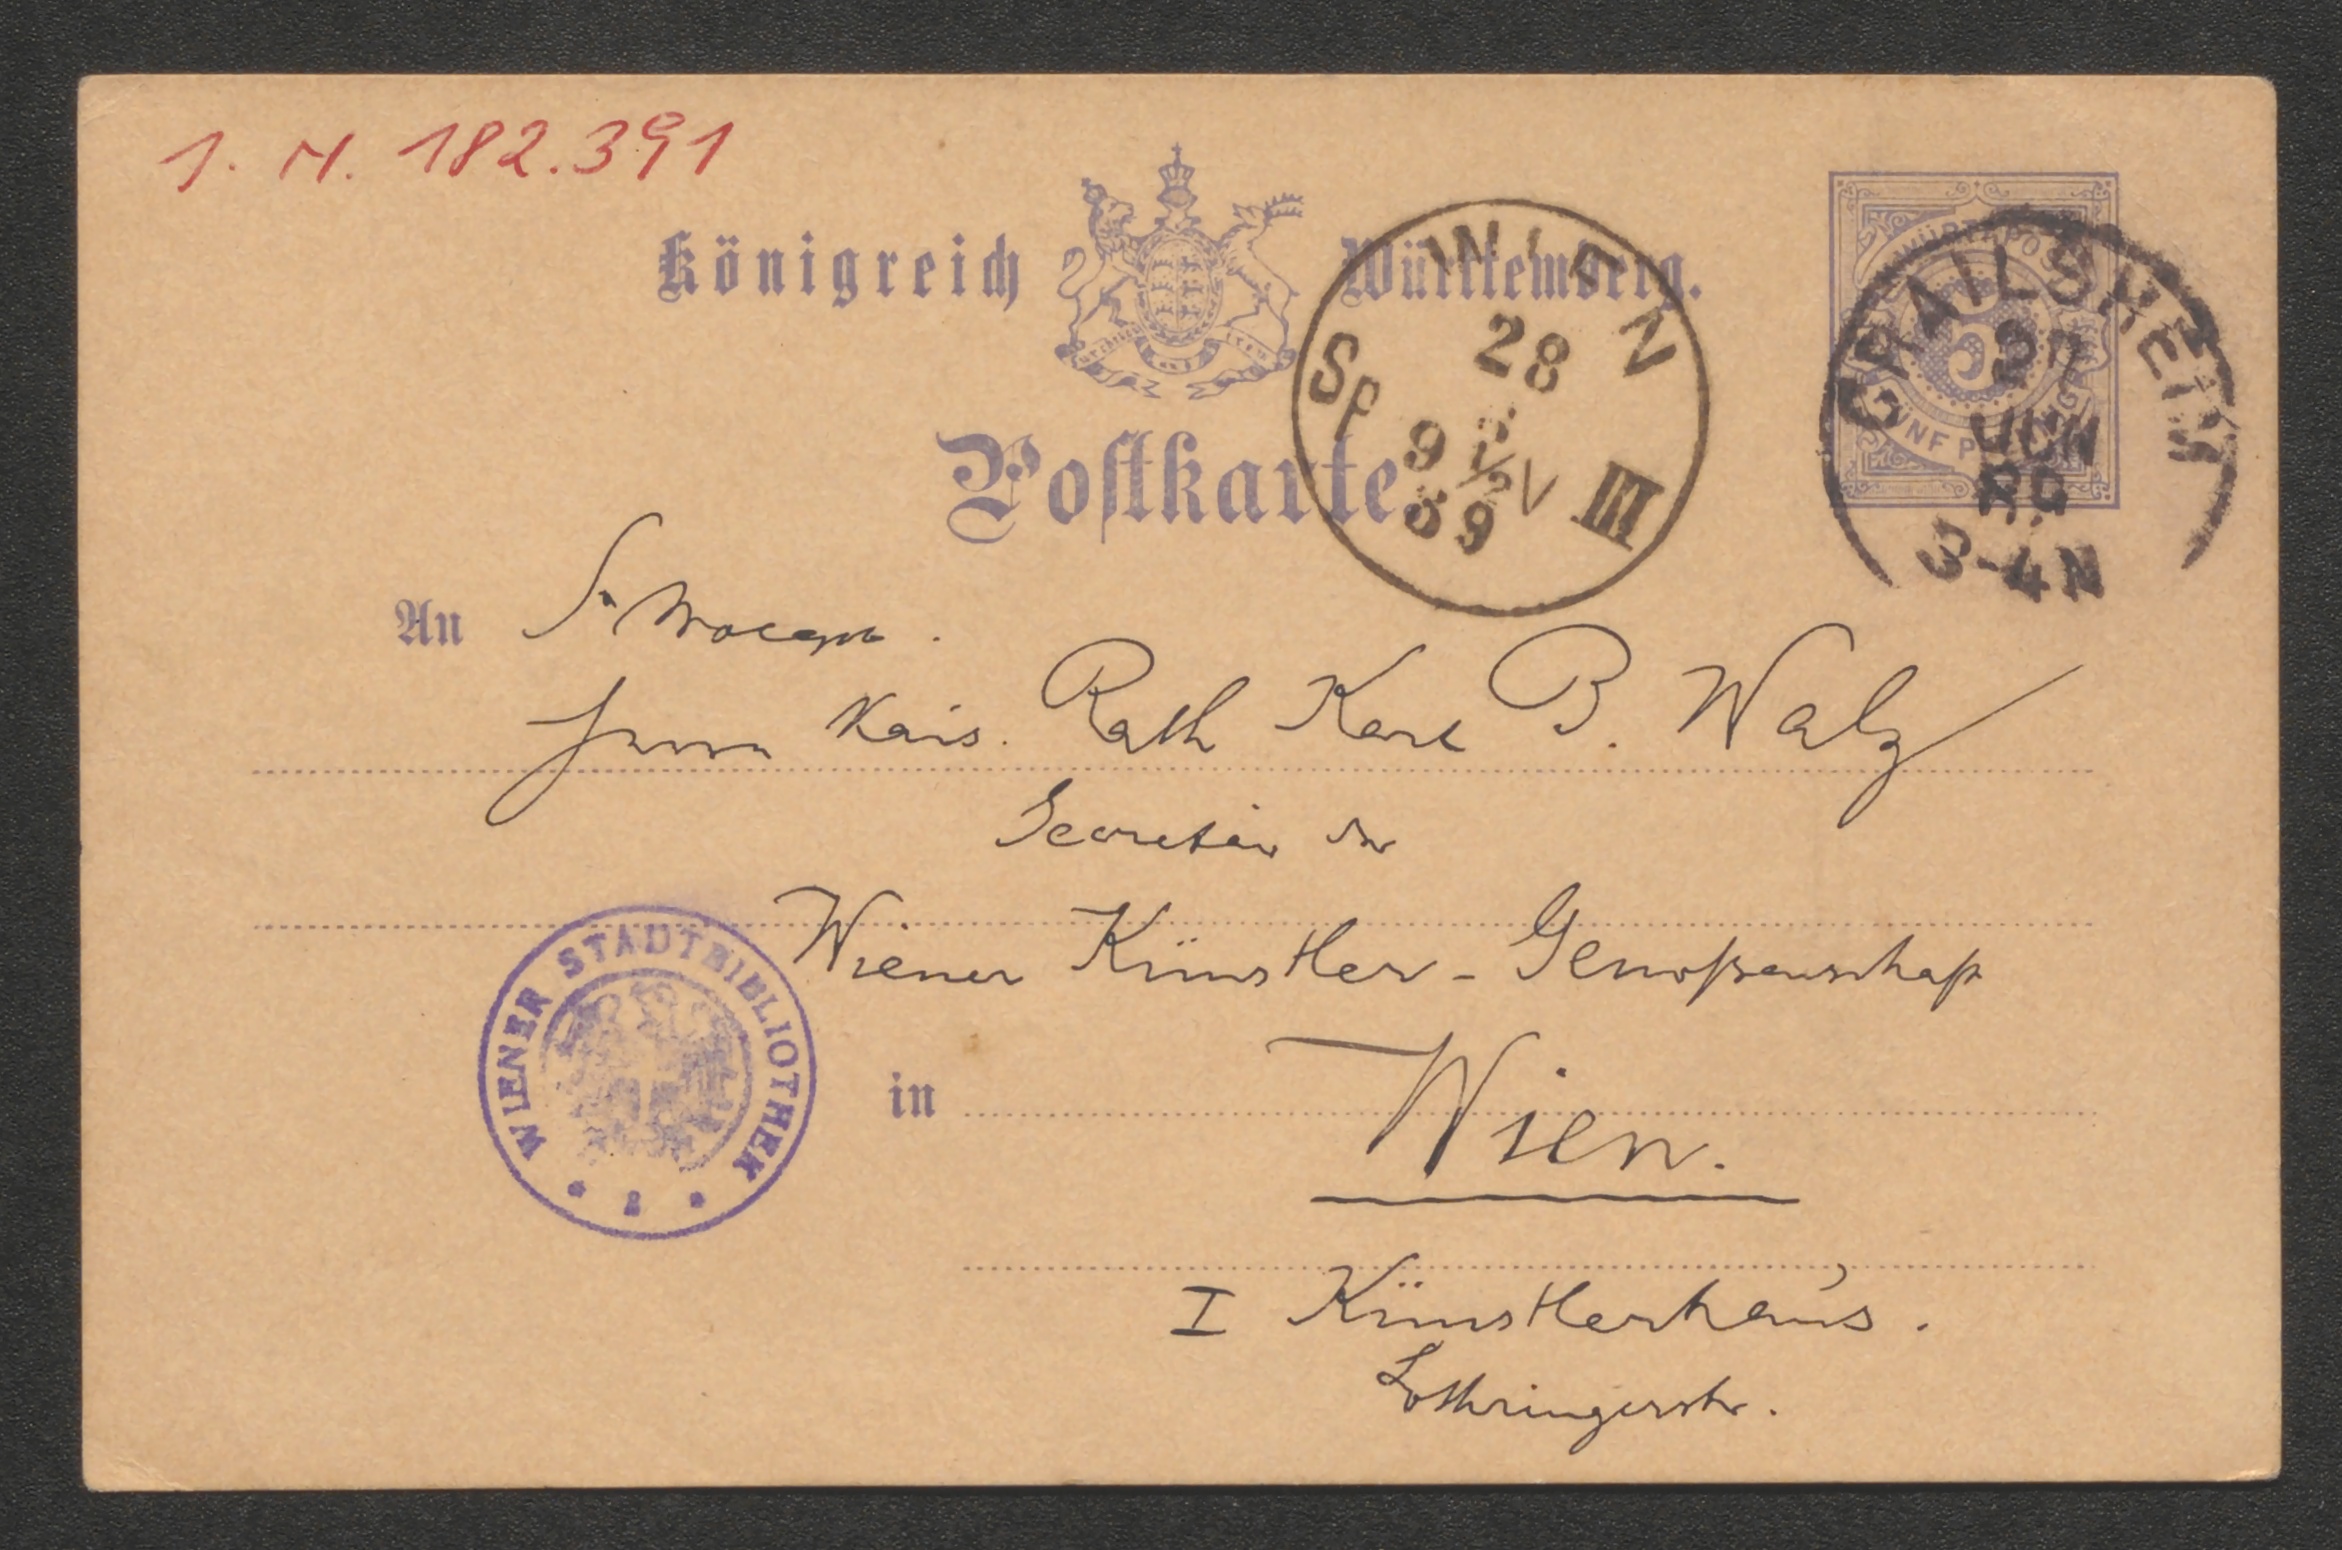 I. N. 182.391
Königreich Württemberg.
WÜRTT. POST
FÜNF
CRAILSHEIM
27
JUN
89
3-4N
WIEN
28
Sp 9 1/2 V III
89
Postkarte.
An S. Wohlgeb.
Herrn Kais. Rath Karl B. Walz
Secretär der
Wiener Künstler-Genoßenschaft
WIENER STADTBIBLIOTHEK
in Wien.
I Künstlerhaus.
Lothringerstr.